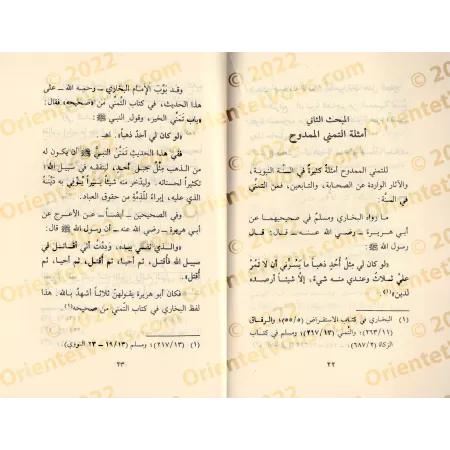 المبحث الثاني
أمثلة التمني الممدوح
للتمني الممدوح أمثلةٌ كثيرةٌ في السنَّة النبوية،
والآثار الواردة عن الصحابة، والتابعين، فمن التمني
في السنة:
ما رواه البخاري ومسلم في صحيحيهما عن
أبي هريرة ـ رضي الله عنه ـ قال: قال
رسول الله ﷺ:
«لو كان لي مِثْلُ أُحُدٍ ذهباً ما يَسُرُّني أن لا تَمُرَّ
عليَّ ثلاثٌ وعندي منه شيء، إلَّا شيئاً أرصده
لدين»(١).
(١) البخاري في كتاب الاستقراض (٥٥/٥)؛ والرقاق
(٢٦٣/١١)؛ والتمني (٢١٧/١٣)؛ ومسلم في كتاب
الزكاة (٦٨٧/٢).
٢٢
وقد بوَّب الإمام البخاري ـ رحمه الله ـ على
هذا الحديث، في كتاب التَّمني من «صحيحه» فقال:
«باب تَمنِّي الخير، وقول النبي ﷺ:
«لو كان لي أُحدٌ ذهباً». اهـ.
ففي هذا الحديث تَمَنَّى النبيُّ ﷺ أن يكون له
من الذهب مِثْلُ جبل أُحُد، لينفقه في سبيل الله؛
تكثيراً لحسناته. وليدَّخر منه شيئاً يسيراً يُوفِّي به دَيْنَهُ
الذي عليه، إبراءً للذِّمَّةِ من حقوق العباد.
وفي الصحيحين ـ أيضاً ـ عن الأعرج عن
أبي هريرة ـ رضي الله عنه ـ أن رسول الله ﷺ قال:
«والـذي نفسي بيـده، وَدِدْتُ أني أُقـاتـل في
سبيل الله فأُقتل، ثم أُحيا، ثم أُقتل، ثم أُحيا، ثم
أُقتل».
فكان أبو هريرة يقولهنَّ ثلاثاً أشهدُ بالله. هذا
لفظ البخاري في كتاب التمني من صحيحه(١).
(١) (٢١٧/١٣)؛ ومسلم (١٩/١٣ ـ ٢٣ النووي).
٢٣
© 2022
Orientetvous.com